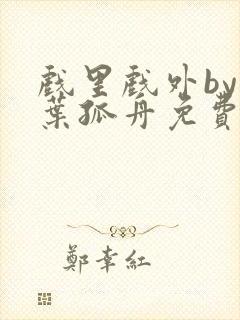 戲里戲外by
葉孤丹免費
鄭幸紅